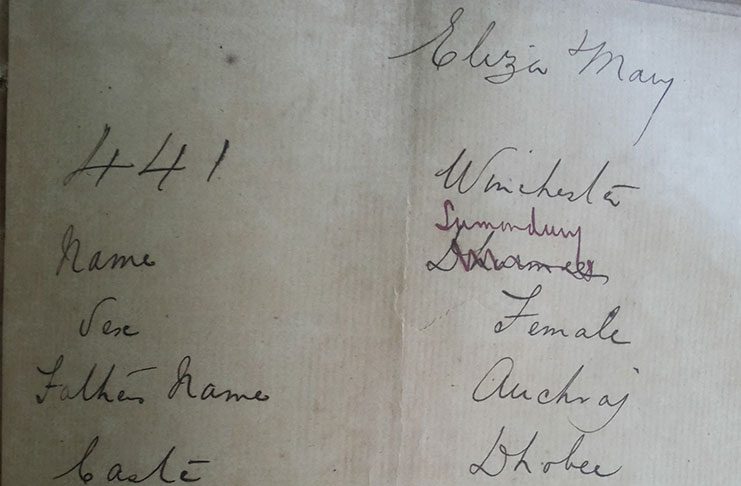 Eliza Mary
441 Winchester
Sumondury
Name
Sex Female
Father's Name Auchraj
Caste Dhobee